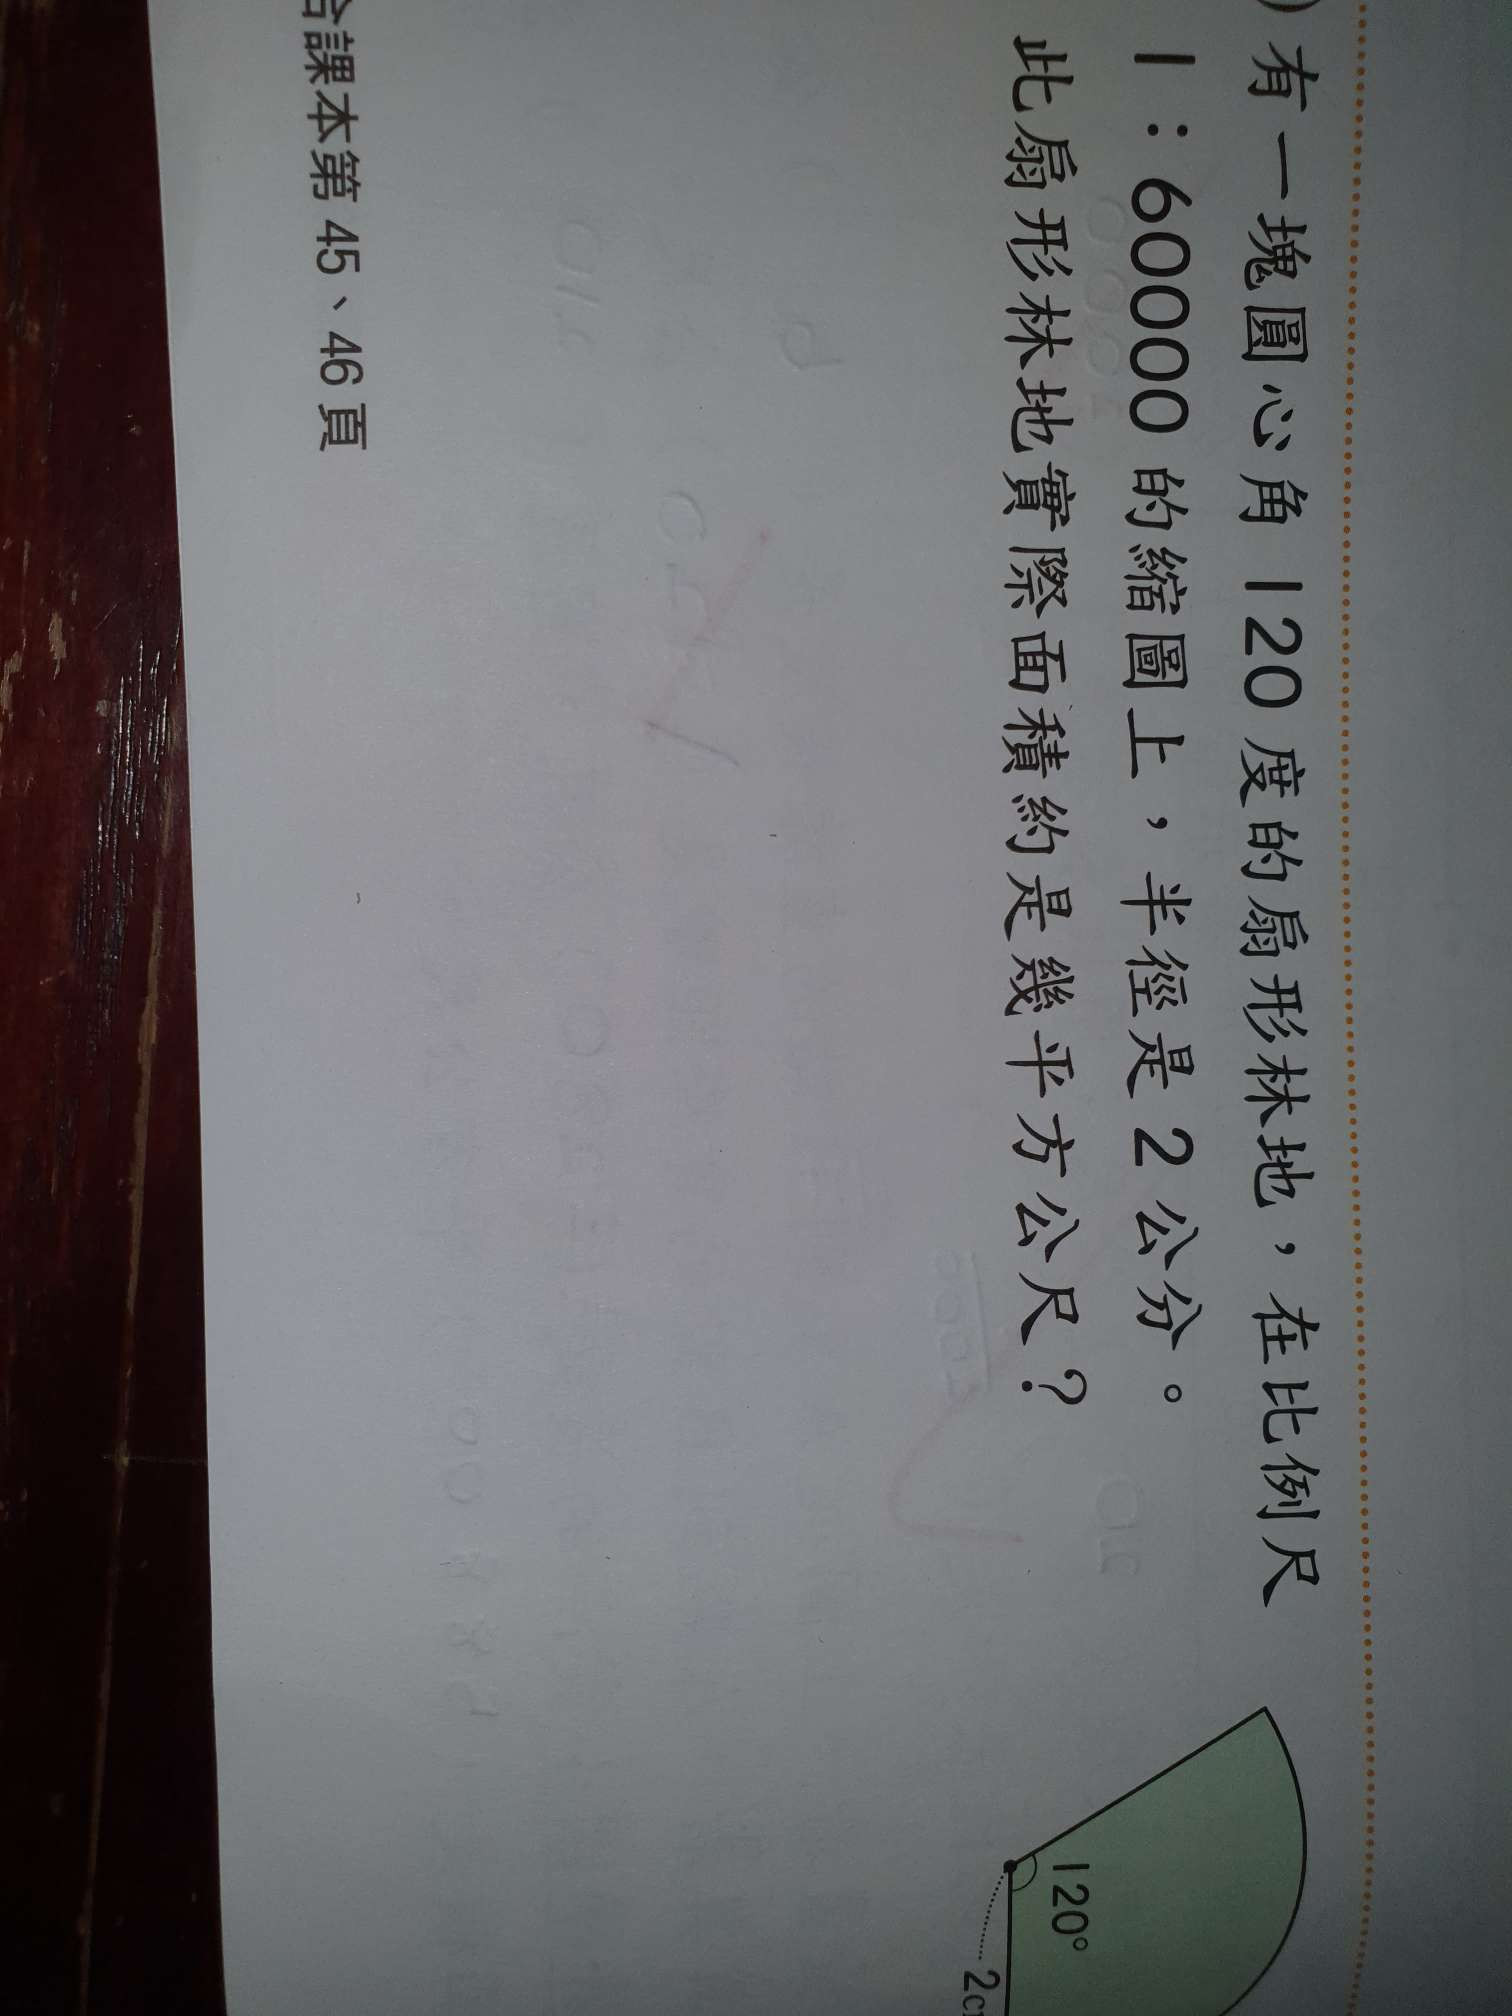 )有一塊圓心角120度的扇形林地，在比例尺
1：60000的縮圖上，半徑是2公分。
此扇形林地實際面積約是幾平方公尺？
120°
2c
合課本第45、46頁